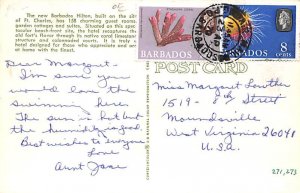 The new Barbados Hilton, built on the site
of Ft. Charles, has 158 charming guest rooms,
garden cottages and suites. Situated on this spec-
tacular beach-front site, the hotel recaptures the
old fort's flavor through its native coral limestone
structure and colonnaded courts. It is truly a
hotel designed for those who appreciate and are
at home with the finest.
Dear Margaret,
I'm sure you
would love the
swimming here.
The sun is hot but
the humidity is good.
Best wishes to everyone
Love
Aunt Jane
BARBADOS
BARBADOS
8
cents
POST CARD
Miss Margaret Lowther
1519 - 8th Street
Moundsville
West Virginia 26041
U.S.A.
271,273